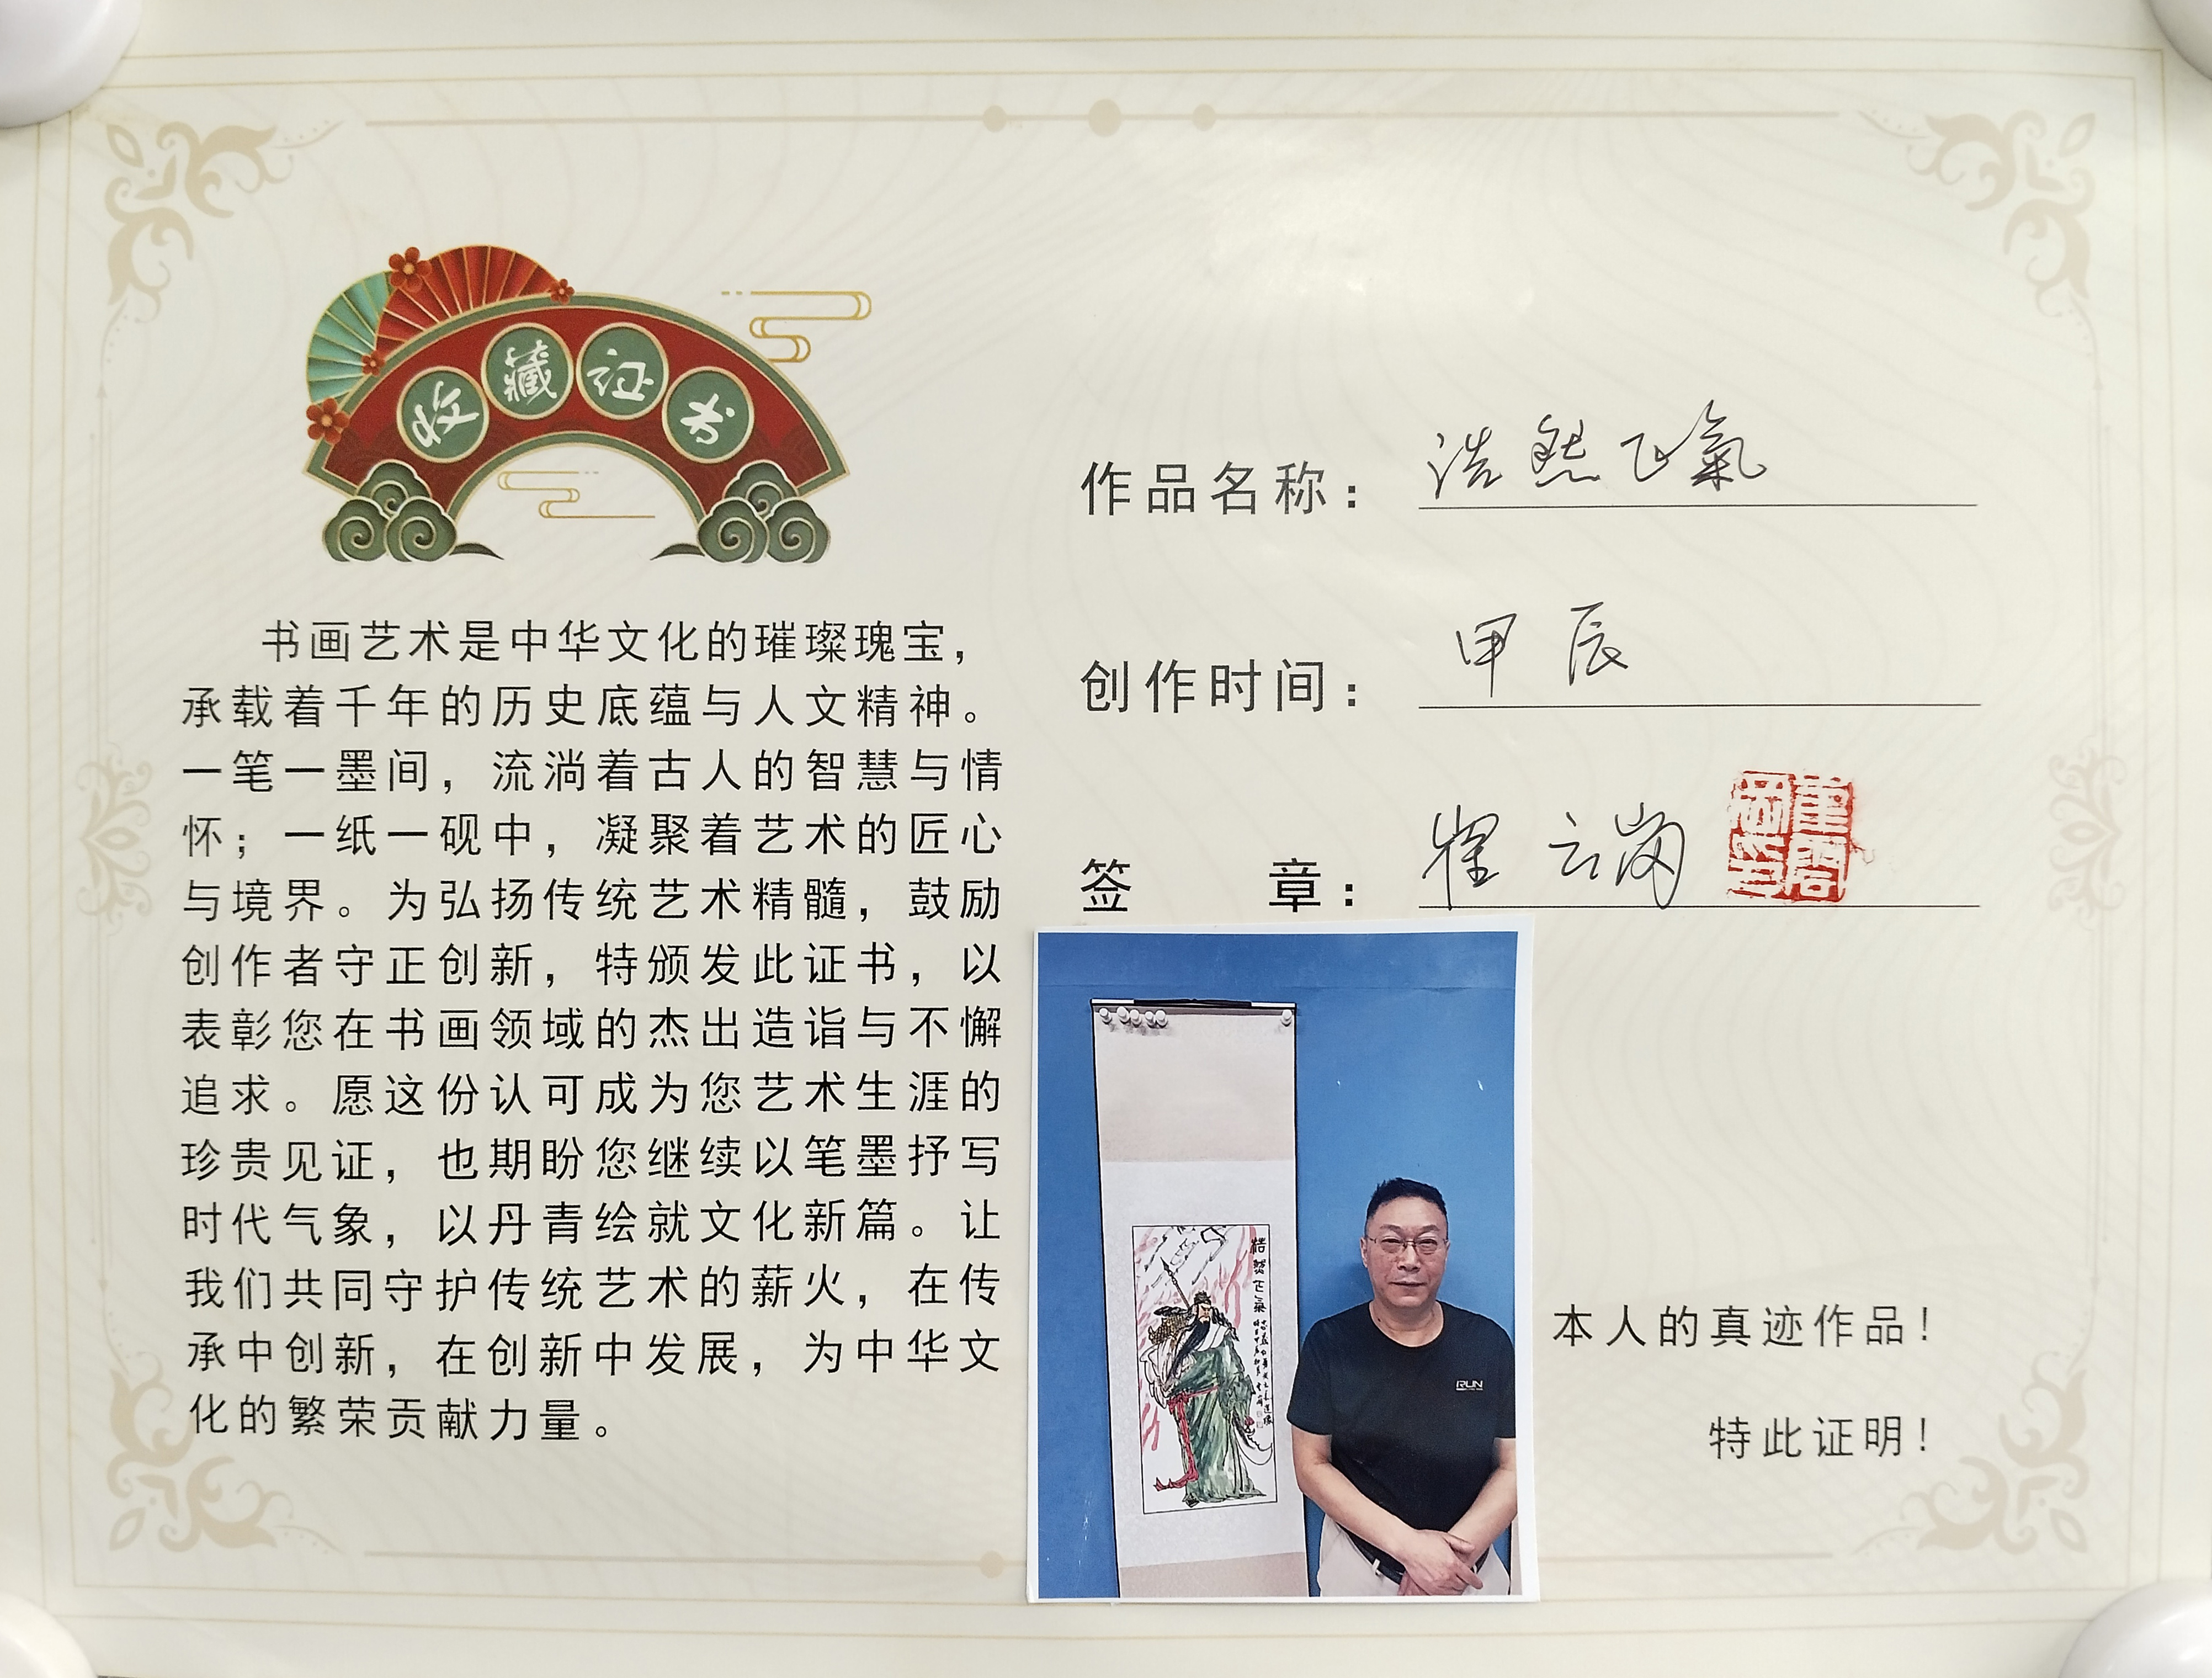 收藏证书
书画艺术是中华文化的璀璨瑰宝，
承载着千年的历史底蕴与人文精神。
一笔一墨间，流淌着古人的智慧与情
怀；一纸一砚中，凝聚着艺术的匠心
与境界。为弘扬传统艺术精髓，鼓励
创作者守正创新，特颁发此证书，以
表彰您在书画领域的杰出造诣与不懈
追求。愿这份认可成为您艺术生涯的
珍贵见证，也期盼您继续以笔墨抒写
时代气象，以丹青绘就文化新篇。让
我们共同守护传统艺术的薪火，在传
承中创新，在创新中发展，为中华文
化的繁荣贡献力量。
作品名称：浩然正氣
创作时间：甲辰
签章：崔云岗
浩然正氣
RUN
本人的真迹作品！
特此证明！